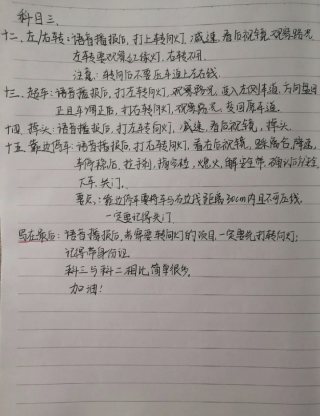 科目三.
十二、左/右转:语音播报后,打上转向灯,减速,看后视镜,观察路况
左转要观察红绿灯,右转不用.
注意:转向后不要压车道上左右线.
十三、超车:语音播报后,打左转向灯,观察路况,驶入左侧车道,方向盘回
正且车调正后,打右转向灯,观察路况,驶回原车道.
十四、掉头:语音播报后,打左转向灯,减速,看后视镜,掉头.
十五、靠边停车:语音播报后,打右转向灯,看右后视镜,踩离合,降速,
车停稳后,拉手刹,挂空档,熄火,解安全带,
下车,关门.
要点:靠边停车要将车与右边线距离30cm内且不可压线.
一定要记得关门
写在最后:语音播报后,若需要转向灯的项目,一定要先打转向灯;
记得带身份证.
科三与科二相比,简单很多.
加油!